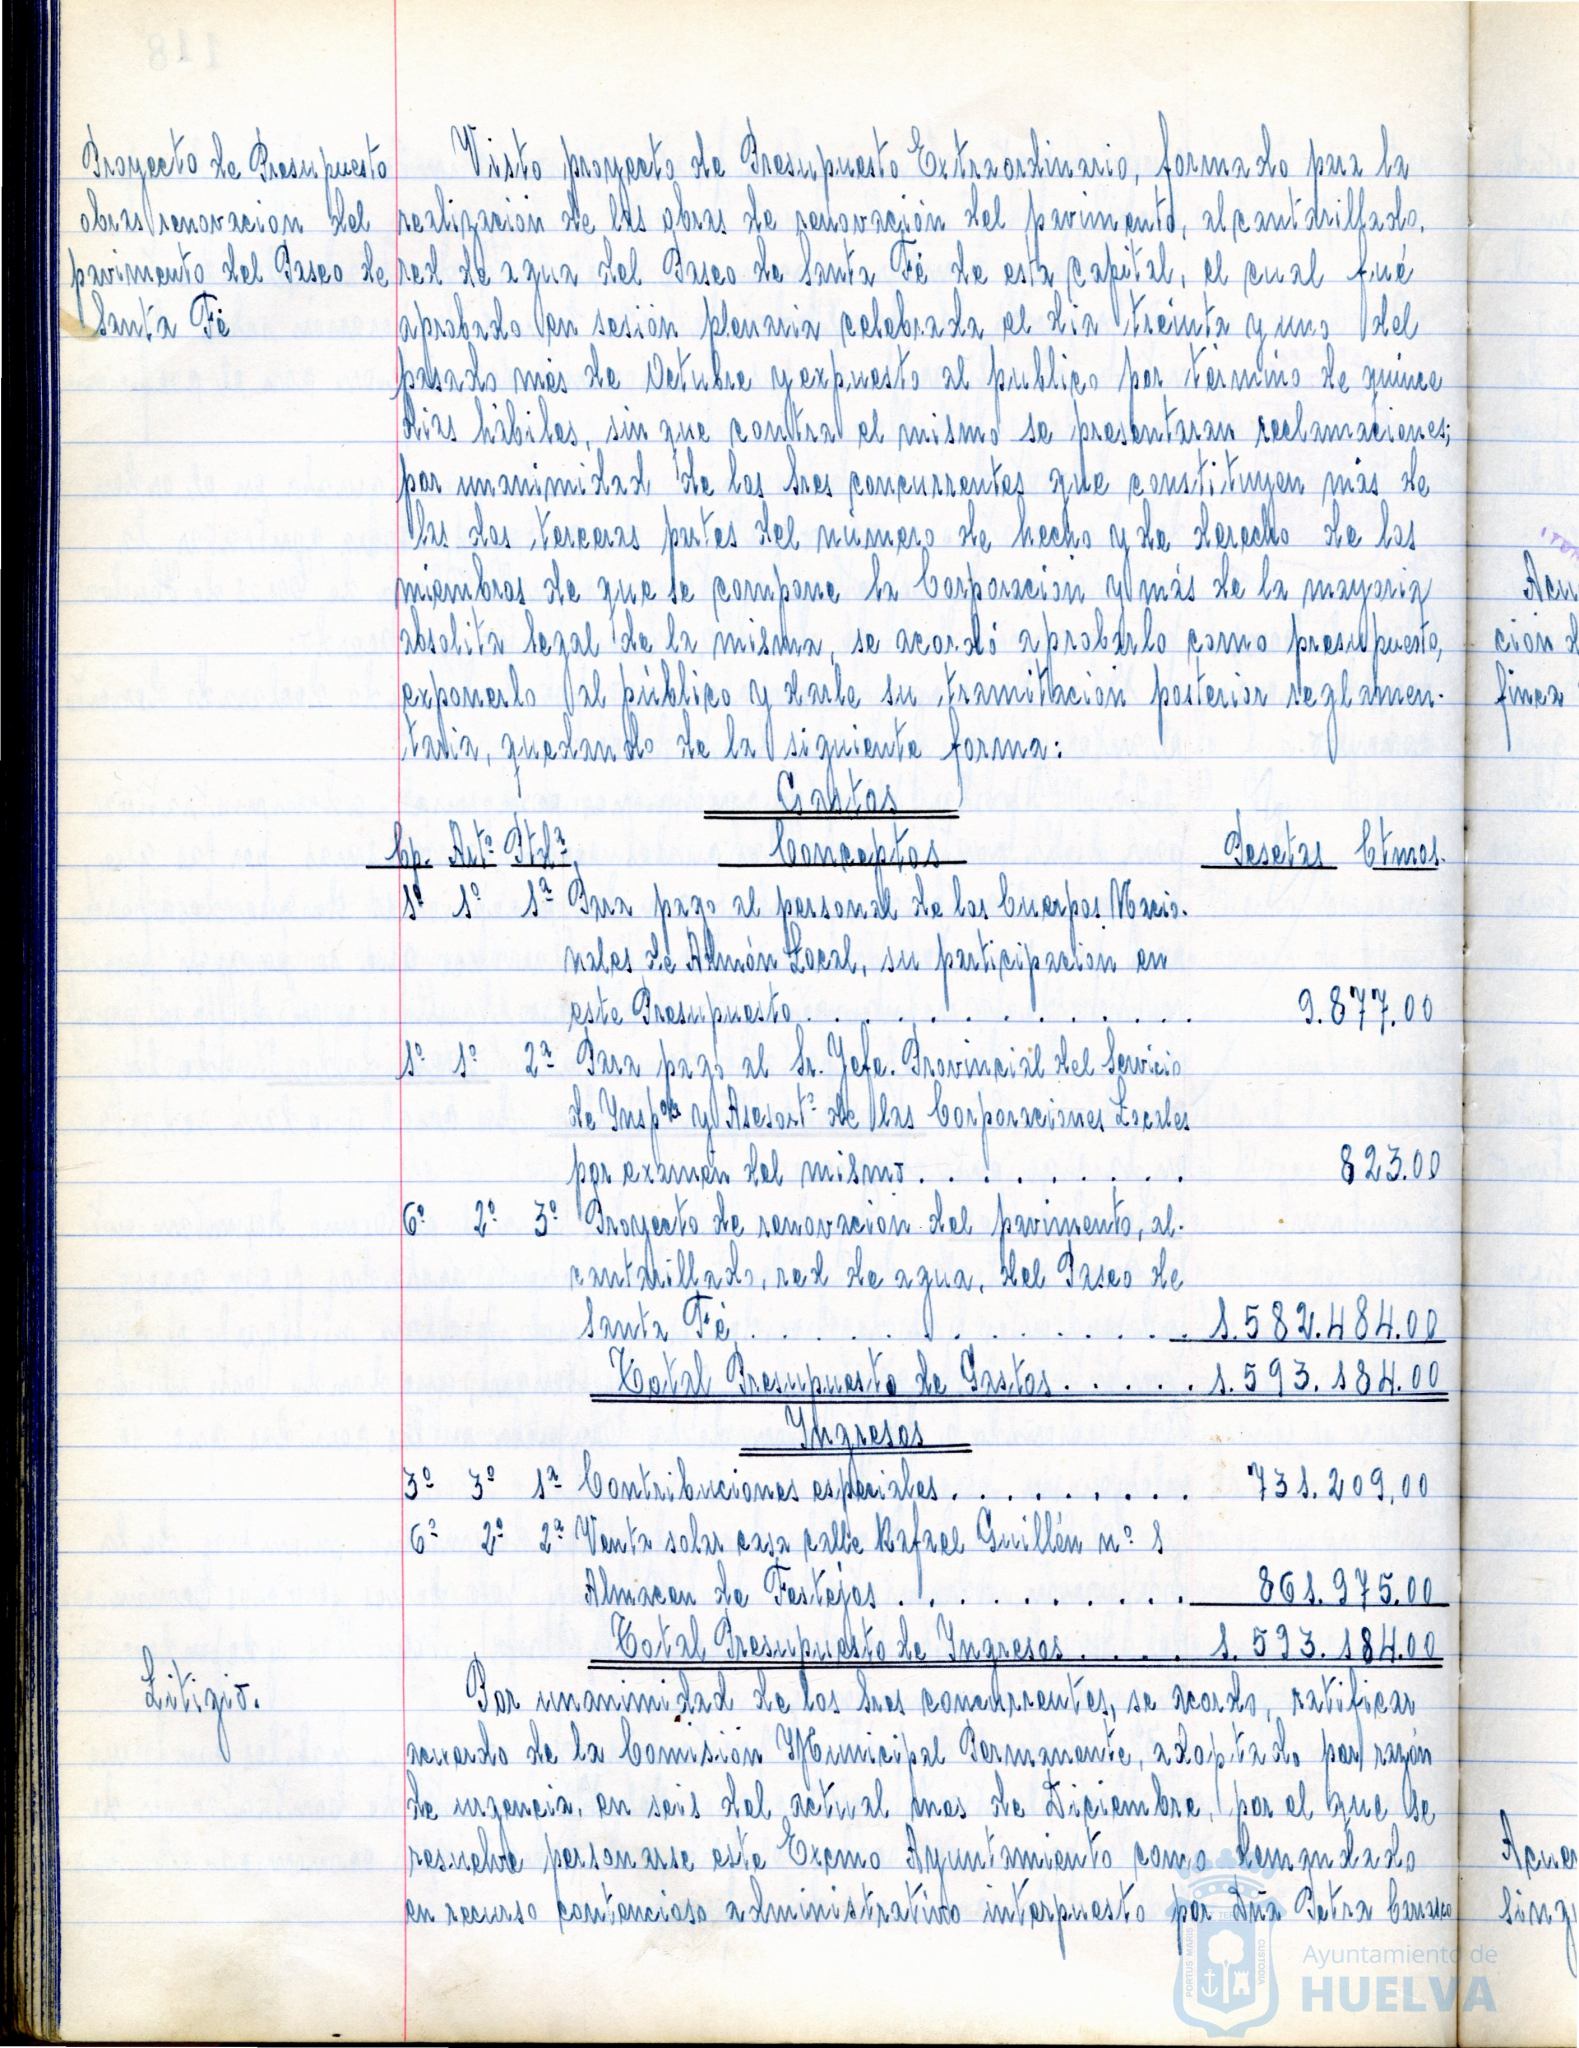 Proyecto de Presupuesto
obras renovacion del
pavimento del Paseo de
Santa Fé
Visto proyecto de Presupuesto Extraordinario, formado para la
realización de las obras de renovación del pavimento, alcantarillado,
red de agua del Paseo de Santa Fé de esta capital, el cual fué
aprobado en sesión plenaria celebrada el dia treinta y uno del
pasado mes de Octubre y expuesto al publico por término de quince
dias hábiles, sin que contra el mismo se presentaran reclamaciones;
por unanimidad de los Sres concurrentes que constituyen más de
las dos terceras partes del número de hecho y de derecho de los
miembros de que se compone la Corporación y más de la mayoria
absolita legal de la misma, se acordó aprobarlo como presupuesto,
exponerlo al público y darle su tramitación posterior reglamen-
taria, quedando de la siguiente forma:
Gastos
Cp. Artº Ptdª, Conceptos Pesetas Ctmos.
1º 1º 1ª Para pago al personal de los Cuerpos Nacio-
nales de Admón Local, su participación en
este Presupuesto . . . . . . . . . . . 9.877.00
1º 1º 2ª Para pago al Sr. Jefe. Provincial del Servicio
de Inspón y Asesortº de las Corporaciones Locales
por examen del mismo . . . . . . . . . 823.00
6º 2º 3º Proyecto de renovación del pavimento, al-
cantarillado, red de agua, del Paseo de
Santa Fé . . . . . . . . . . 1.582.484.00
Total Presupuesto de Gastos . . . . . 1.593.184.00
Ingresos
3º 3º 1ª Contribuciones especiales . . . . . . . . . 731.209,00
6º 2º 2ª Venta solar casa calle Rafael Guillén nº 8
Almacen de Festejos . . . . . . . . . . 861.975.00
Total Presupuesto de Ingresos . . . . 1.593.184.00
Litigio.
Por unanimidad de los Sres concurrentes, se acordo, ratificar
acuerdo de la Comisión Municipal Permanente, adoptado por razón
de urgencia, en seis del actual mes de Diciembre, por el que se
resuelve personarse este Excmo Ayuntamiento como demandado
en recurso contencioso administrativo interpuesto por Dña Petra Carrasco
Acu
ción d
finca
Acuer
sing
PORTUS MARIS
CUSTODIA
Ayuntamiento de
HUELVA